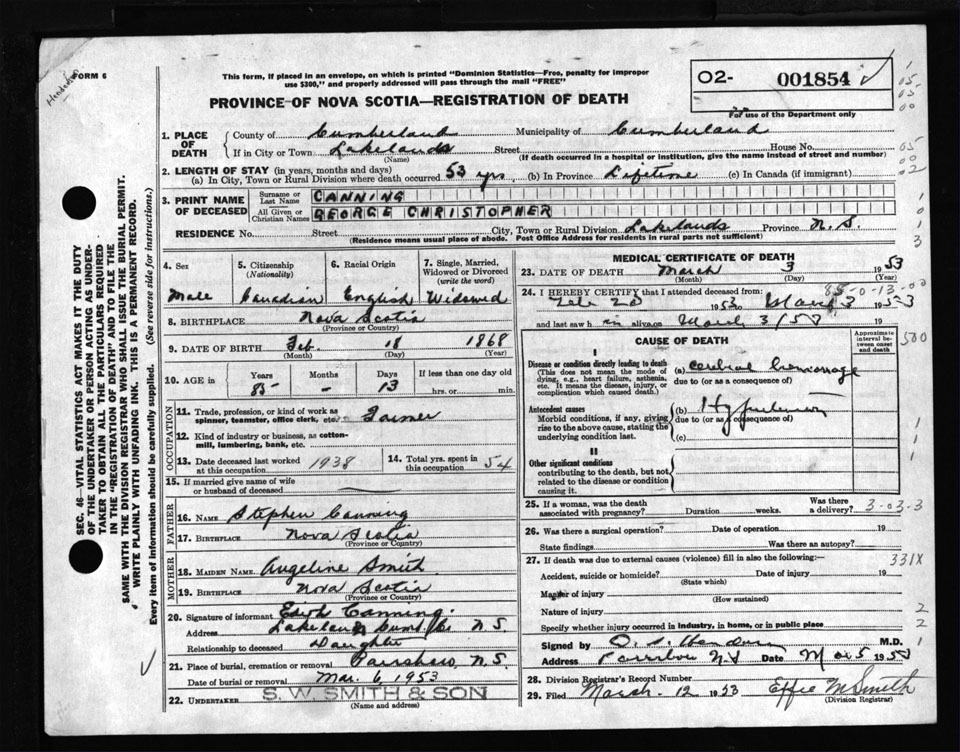 FORM 6
This form, if placed in an envelope, on which is printed "Dominion Statistics—Free, penalty for improper
use $300," and properly addressed will pass through the mail "FREE"
O2- 001854
PROVINCE OF NOVA SCOTIA—REGISTRATION OF DEATH
For use of the Department only
1. PLACE OF DEATH County of Cumberland Municipality of Cumberland
If in City or Town Lakelands Street House No.
(Name) (If death occurred in a hospital or institution, give the name instead of street and number)
2. LENGTH OF STAY (in years, months and days)
(a) In City, Town or Rural Division where death occurred 53 yrs, (b) In Province Lifetime (c) In Canada (if immigrant)
3. PRINT NAME OF DECEASED Surname or Last Name CANNING
All Given or Christian Names GEORGE CHRISTOPHER
RESIDENCE No. Street City, Town or Rural Division Lakelands Province N.S.
(Residence means usual place of abode. Post Office Address for residents in rural parts not sufficient)
4. Sex 5. Citizenship (Nationality) 6. Racial Origin 7. Single, Married, Widowed or Divorced (write the word)
Male Canadian English Widowed
8. BIRTHPLACE Nova Scotia
(Province or Country)
9. DATE OF BIRTH Feb. 18 1868
(Month) (Day) (Year)
10. AGE in Years Months Days If less than one day old
85 - 13 hrs. or min.
OCCUPATION
11. Trade, profession, or kind of work as
spinner, teamster, office clerk, etc. Farmer
12. Kind of industry or business, as cotton-
mill, lumbering, bank, etc.
13. Date deceased last worked at this occupation 1938 14. Total yrs. spent in this occupation 54
15. If married give name of wife
or husband of deceased
FATHER
16. NAME Stephen Canning
17. BIRTHPLACE Nova Scotia
(Province or Country)
MOTHER
18. MAIDEN NAME Angeline Smith
19. BIRTHPLACE Nova Scotia
(Province or Country)
20. Signature of informant Edith Canning
Address Lakelands Cumb. Co. N.S.
Relationship to deceased Daughter
21. Place of burial, cremation or removal Parrsboro, N.S.
Date of burial or removal Mar. 6, 1953
22. UNDERTAKER S. W. SMITH & SON
(Name and address)
MEDICAL CERTIFICATE OF DEATH
23. DATE OF DEATH March 3 1953
(Month) (Day) (Year)
85-0-13-00
24. I HEREBY CERTIFY that I attended deceased from:
Feb 20 1953 March 3 1953
and last saw h im alive on March 3/53 19
CAUSE OF DEATH
Approximate interval between onset and death
I
Disease or condition directly leading to death
(This does not mean the mode of dying, e.g., heart failure, asthenia, etc. It means the disease, injury, or complication which caused death.)
(a) cerebral hemorrage
due to (or as a consequence of)
Antecedent causes
Morbid conditions, if any, giving rise to the above cause, stating the underlying condition last.
(b) Hypertension
due to (or as a consequence of)
(c)
II
Other significant conditions
contributing to the death, but not related to the disease or condition causing it.
25. If a woman, was the death associated with pregnancy? Duration weeks. Was there a delivery?
3-03-3
26. Was there a surgical operation? Date of operation 19
State findings Was there an autopsy?
27. If death was due to external causes (violence) fill in also the following:
331X
Accident, suicide or homicide? Date of injury 19
(State which)
Manner of injury
(How sustained)
Nature of injury
Specify whether injury occurred in industry, in home, or in public place
Signed by M.D.
Address Parrsboro N.S Date Mar 5 1953
28. Division Registrar's Record Number
29. Filed March 12 1953 Effie M Smith
(Division Registrar)
SEC. 46—VITAL STATISTICS ACT MAKES IT THE DUTY
OF THE UNDERTAKER OR PERSON ACTING AS UNDER-
TAKER TO OBTAIN ALL THE PARTICULARS REQUIRED
IN THE "REGISTRATION OF DEATH" AND TO FILE THE
SAME WITH THE DIVISION REGISTRAR WHO SHALL ISSUE THE BURIAL PERMIT.
WRITE PLAINLY WITH UNFADING INK. THIS IS A PERMANENT RECORD.
Every item of information should be carefully supplied. (See reverse side for instructions.)